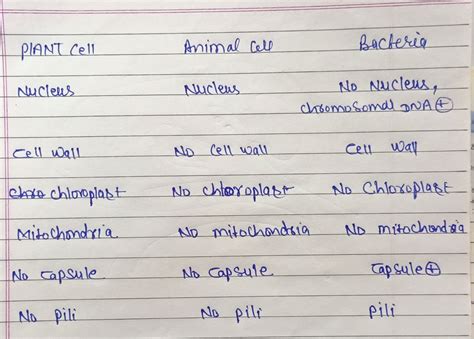 PlANT Cell Animal Cell Bacteria
Nucleus Nucleus No Nucleus,
chromosomal DNA ⊕
Cell Wall No cell wall Cell Wall
Chro chloroplast No chloroplast No Chloroplast
Mitochondria No mitochondria No mitochondria
No capsule No Capsule Capsule ⊕
No Pili No Pili Pili